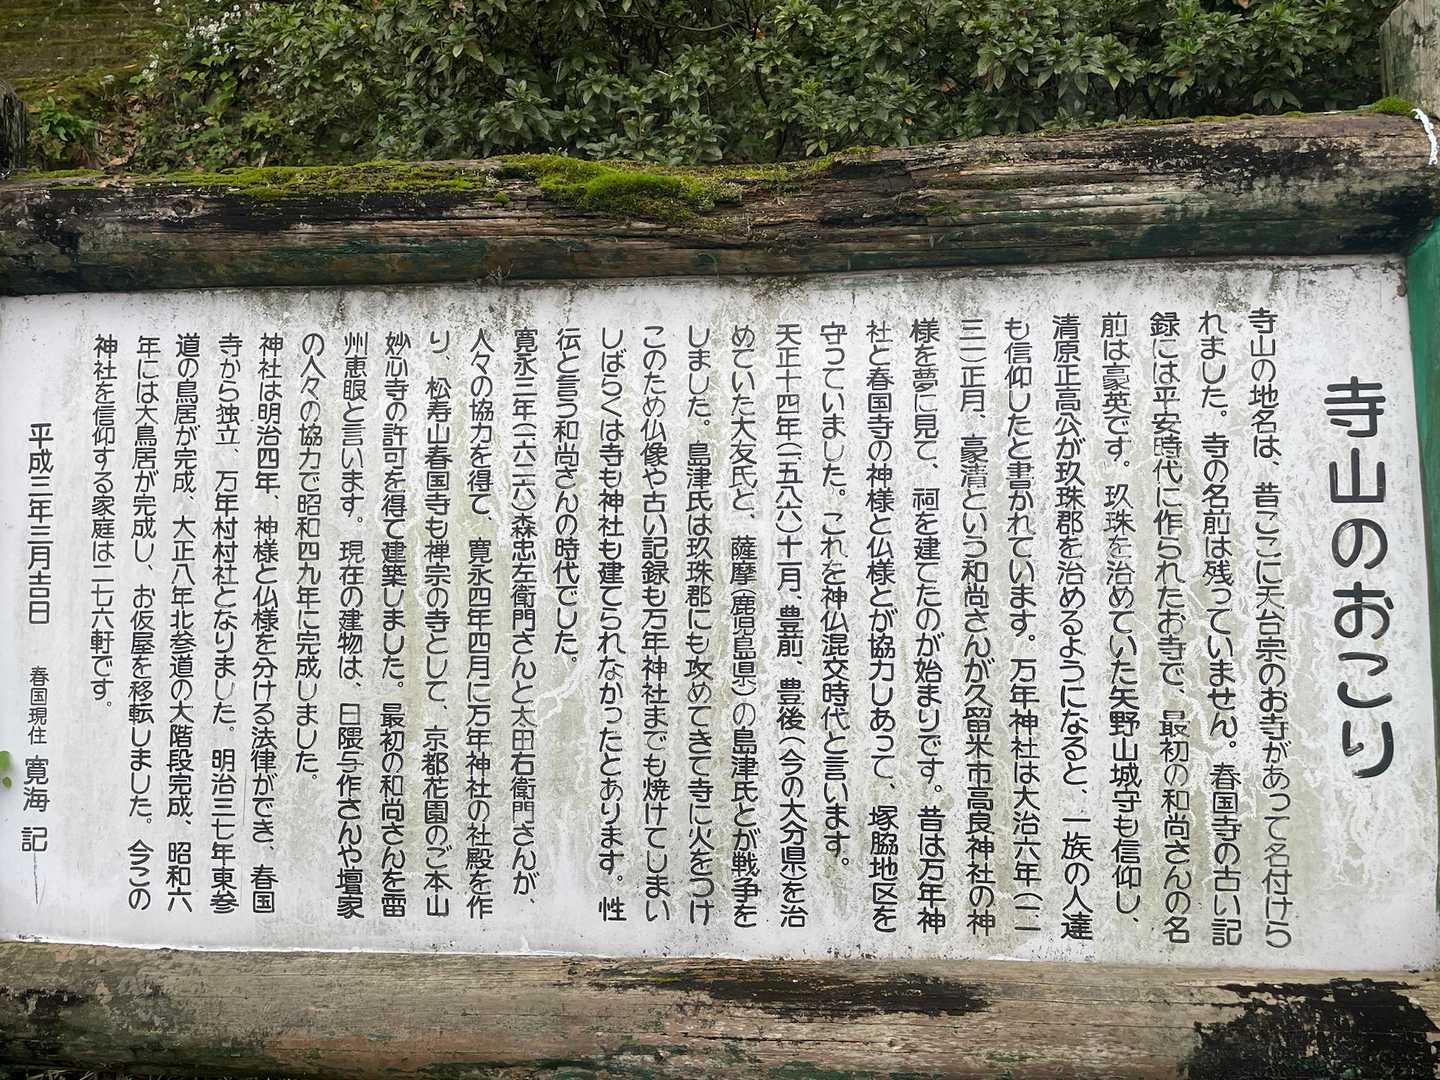 寺山のおこり
寺山の地名は、昔ここに天台宗のお寺があって名付けら
れました。寺の名前は残っていません。春国寺の古い記
録には平安時代に作られたお寺で、最初の和尚さんの名
前は豪英です。玖珠を治めていた矢野山城守も信仰し、
清原正高公が玖珠郡を治めるようになると、一族の人達
も信仰したと書かれています。万年神社は大治六年(一一
三一)正月、豪清という和尚さんが久留米市高良神社の神
様を夢に見て、祠を建てたのが始まりです。昔は万年神
社と春国寺の神様と仏様とが協力しあって、塚脇地区を
守っていました。これを神仏混交時代と言います。
天正十四年(一五八六)十一月、豊前、豊後(今の大分県)を治
めていた大友氏と、薩摩(鹿児島県)の島津氏とが戦争を
しました。島津氏は玖珠郡にも攻めてきて寺に火をつけ
このため仏像や古い記録も万年神社までも焼けてしまい
しばらくは寺も神社も建てられなかったとあります。性
伝と言う和尚さんの時代でした。
寛永三年(一六二六)森忠左衛門さんと太田右衛門さんが、
人々の協力を得て、寛永四年四月に万年神社の社殿を作
り、松寿山春国寺も禅宗の寺として、京都花園のご本山
妙心寺の許可を得て建築しました。最初の和尚さんを雷
州恵眼と言います。現在の建物は、日隈与作さんや壇家
の人々の協力で昭和四九年に完成しました。
神社は明治四年、神様と仏様を分ける法律ができ、春国
寺から独立、万年村村社となりました。明治三七年東参
道の鳥居が完成、大正八年北参道の大階段完成、昭和六
年には大鳥居が完成し、お仮屋を移転しました。今この
神社を信仰する家庭は二七六軒です。
平成三年三月吉日 春国現住 寛海 記